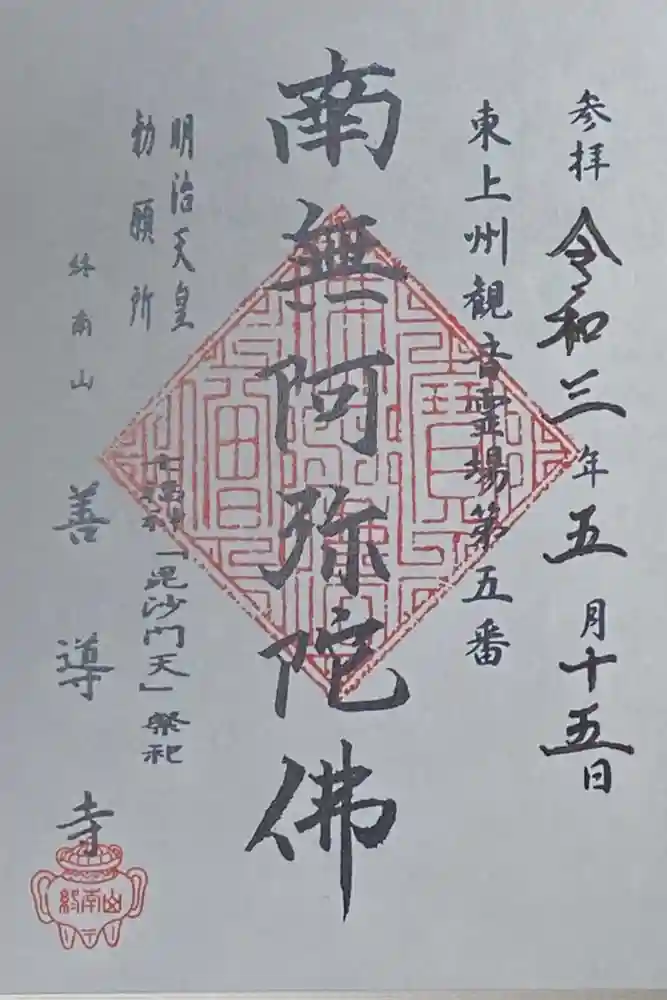 参拝 令和三年五月十五日
東上州観音霊場第五番
南無阿弥陀佛
明治天皇
勅願所
七福神「毘沙門天」祭祀
終南山
善導寺